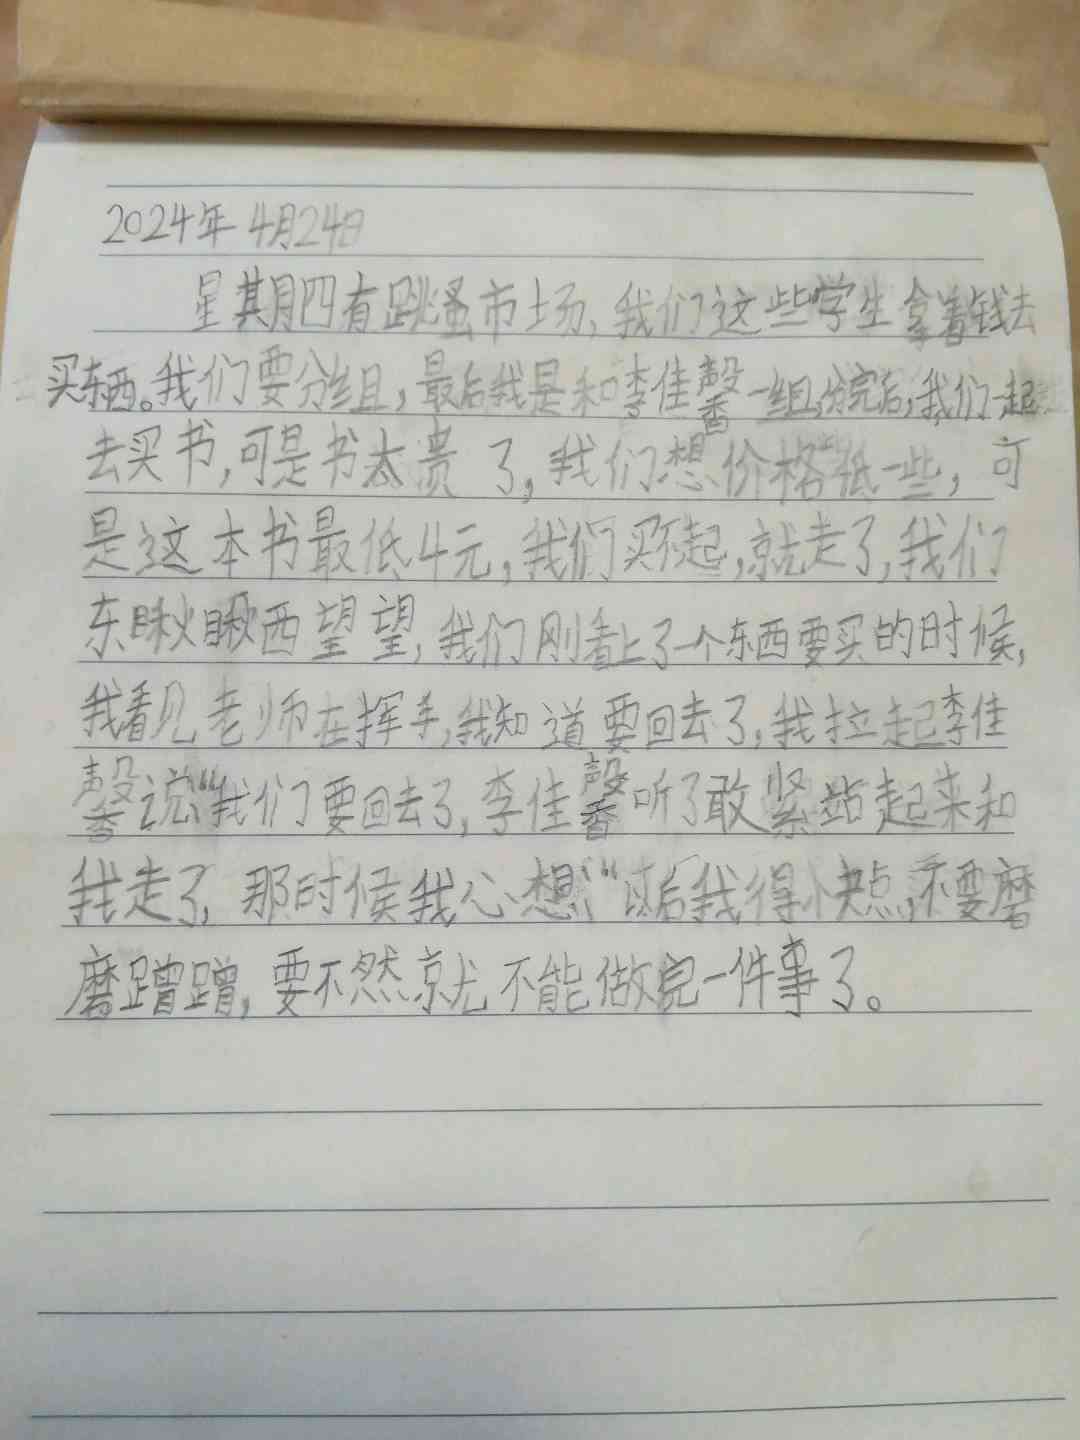 2024年 4月24日
星期四有跳蚤市场,我们这些学生拿着钱去
买东西。我们要分组,最后我是和李佳馨一组,分完后,我们一起
去买书,可是书太贵了,我们想价格低一些,可
是这本书最低4元,我们买不起,就走了,我们
东瞅瞅西望望,我们刚看上了一个东西要买的时候,
我看见老师在挥手,我知道要回去了,我拉起李佳
馨说“我们要回去了,李佳馨听了敢紧站起来和
我走了,那时候我心想:“以后我得快点,不要磨
磨蹭蹭,要不然就不能做完一件事了。